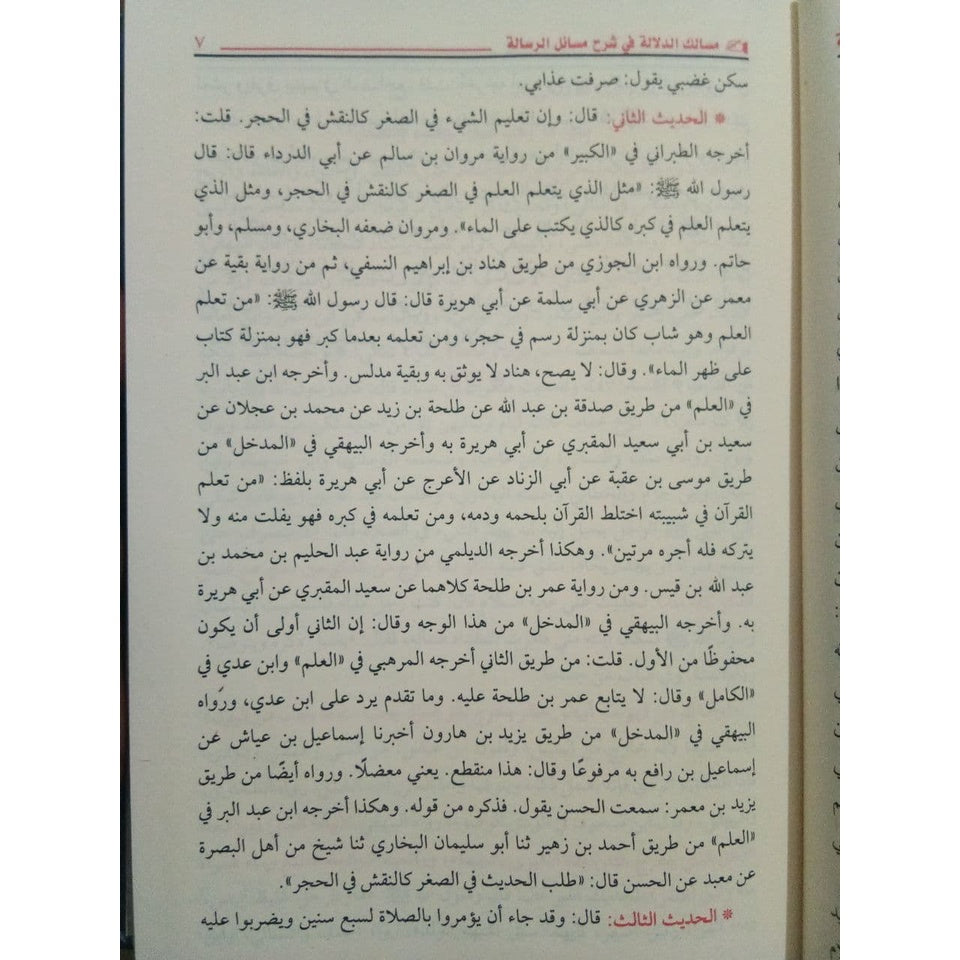 مسالك الدلالة في شرح مسائل الرسالة ٧
سكن غضبي يقول: صرفت عذابي.
* الحديث الثاني: قال: وإن تعليم الشيء في الصغر كالنقش في الحجر. قلت:
أخرجه الطبراني في «الكبير» من رواية مروان بن سالم عن أبي الدرداء قال: قال
رسول الله ﷺ: «مثل الذي يتعلم العلم في الصغر كالنقش في الحجر، ومثل الذي
يتعلم العلم في كبره كالذي يكتب على الماء». ومروان ضعفه البخاري، ومسلم، وأبو
حاتم. ورواه ابن الجوزي من طريق هناد بن إبراهيم النسفي، ثم من رواية بقية عن
معمر عن الزهري عن أبي سلمة عن أبي هريرة قال: قال رسول الله ﷺ: «من تعلم
العلم وهو شاب كان بمنزلة رسم في حجر، ومن تعلمه بعدما كبر فهو بمنزلة كتاب
على ظهر الماء». وقال: لا يصح، هناد لا يوثق به وبقية مدلس. وأخرجه ابن عبد البر
في «العلم» من طريق صدقة بن عبد الله عن طلحة بن زيد عن محمد بن عجلان عن
سعيد بن أبي سعيد المقبري عن أبي هريرة به وأخرجه البيهقي في «المدخل» من
طريق موسى بن عقبة عن أبي الزناد عن الأعرج عن أبي هريرة بلفظ: «من تعلم
القرآن في شبيبته اختلط القرآن بلحمه ودمه، ومن تعلمه في كبره فهو يفلت منه ولا
يتركه فله أجره مرتين». وهكذا أخرجه الديلمي من رواية عبد الحليم بن محمد بن
عبد الله بن قيس. ومن رواية عمر بن طلحة كلاهما عن سعيد المقبري عن أبي هريرة
به. وأخرجه البيهقي في «المدخل» من هذا الوجه وقال: إن الثاني أولى أن يكون
محفوظًا من الأول. قلت: من طريق الثاني أخرجه المرهبي في «العلم» وابن عدي في
«الكامل» وقال: لا يتابع عمر بن طلحة عليه. وما تقدم يرد على ابن عدي، ورَواه
البيهقي في «المدخل» من طريق يزيد بن هارون أخبرنا إسماعيل بن عياش عن
إسماعيل بن رافع به مرفوعًا وقال: هذا منقطع. يعني معضلًا. ورواه أيضًا من طريق
يزيد بن معمر: سمعت الحسن يقول. فذكره من قوله. وهكذا أخرجه ابن عبد البر في
«العلم» من طريق أحمد بن زهير ثنا أبو سليمان البخاري ثنا شيخ من أهل البصرة
عن معبد عن الحسن قال: «طلب الحديث في الصغر كالنقش في الحجر».
* الحديث الثالث: قال: وقد جاء أن يؤمروا بالصلاة لسبع سنين ويضربوا عليه